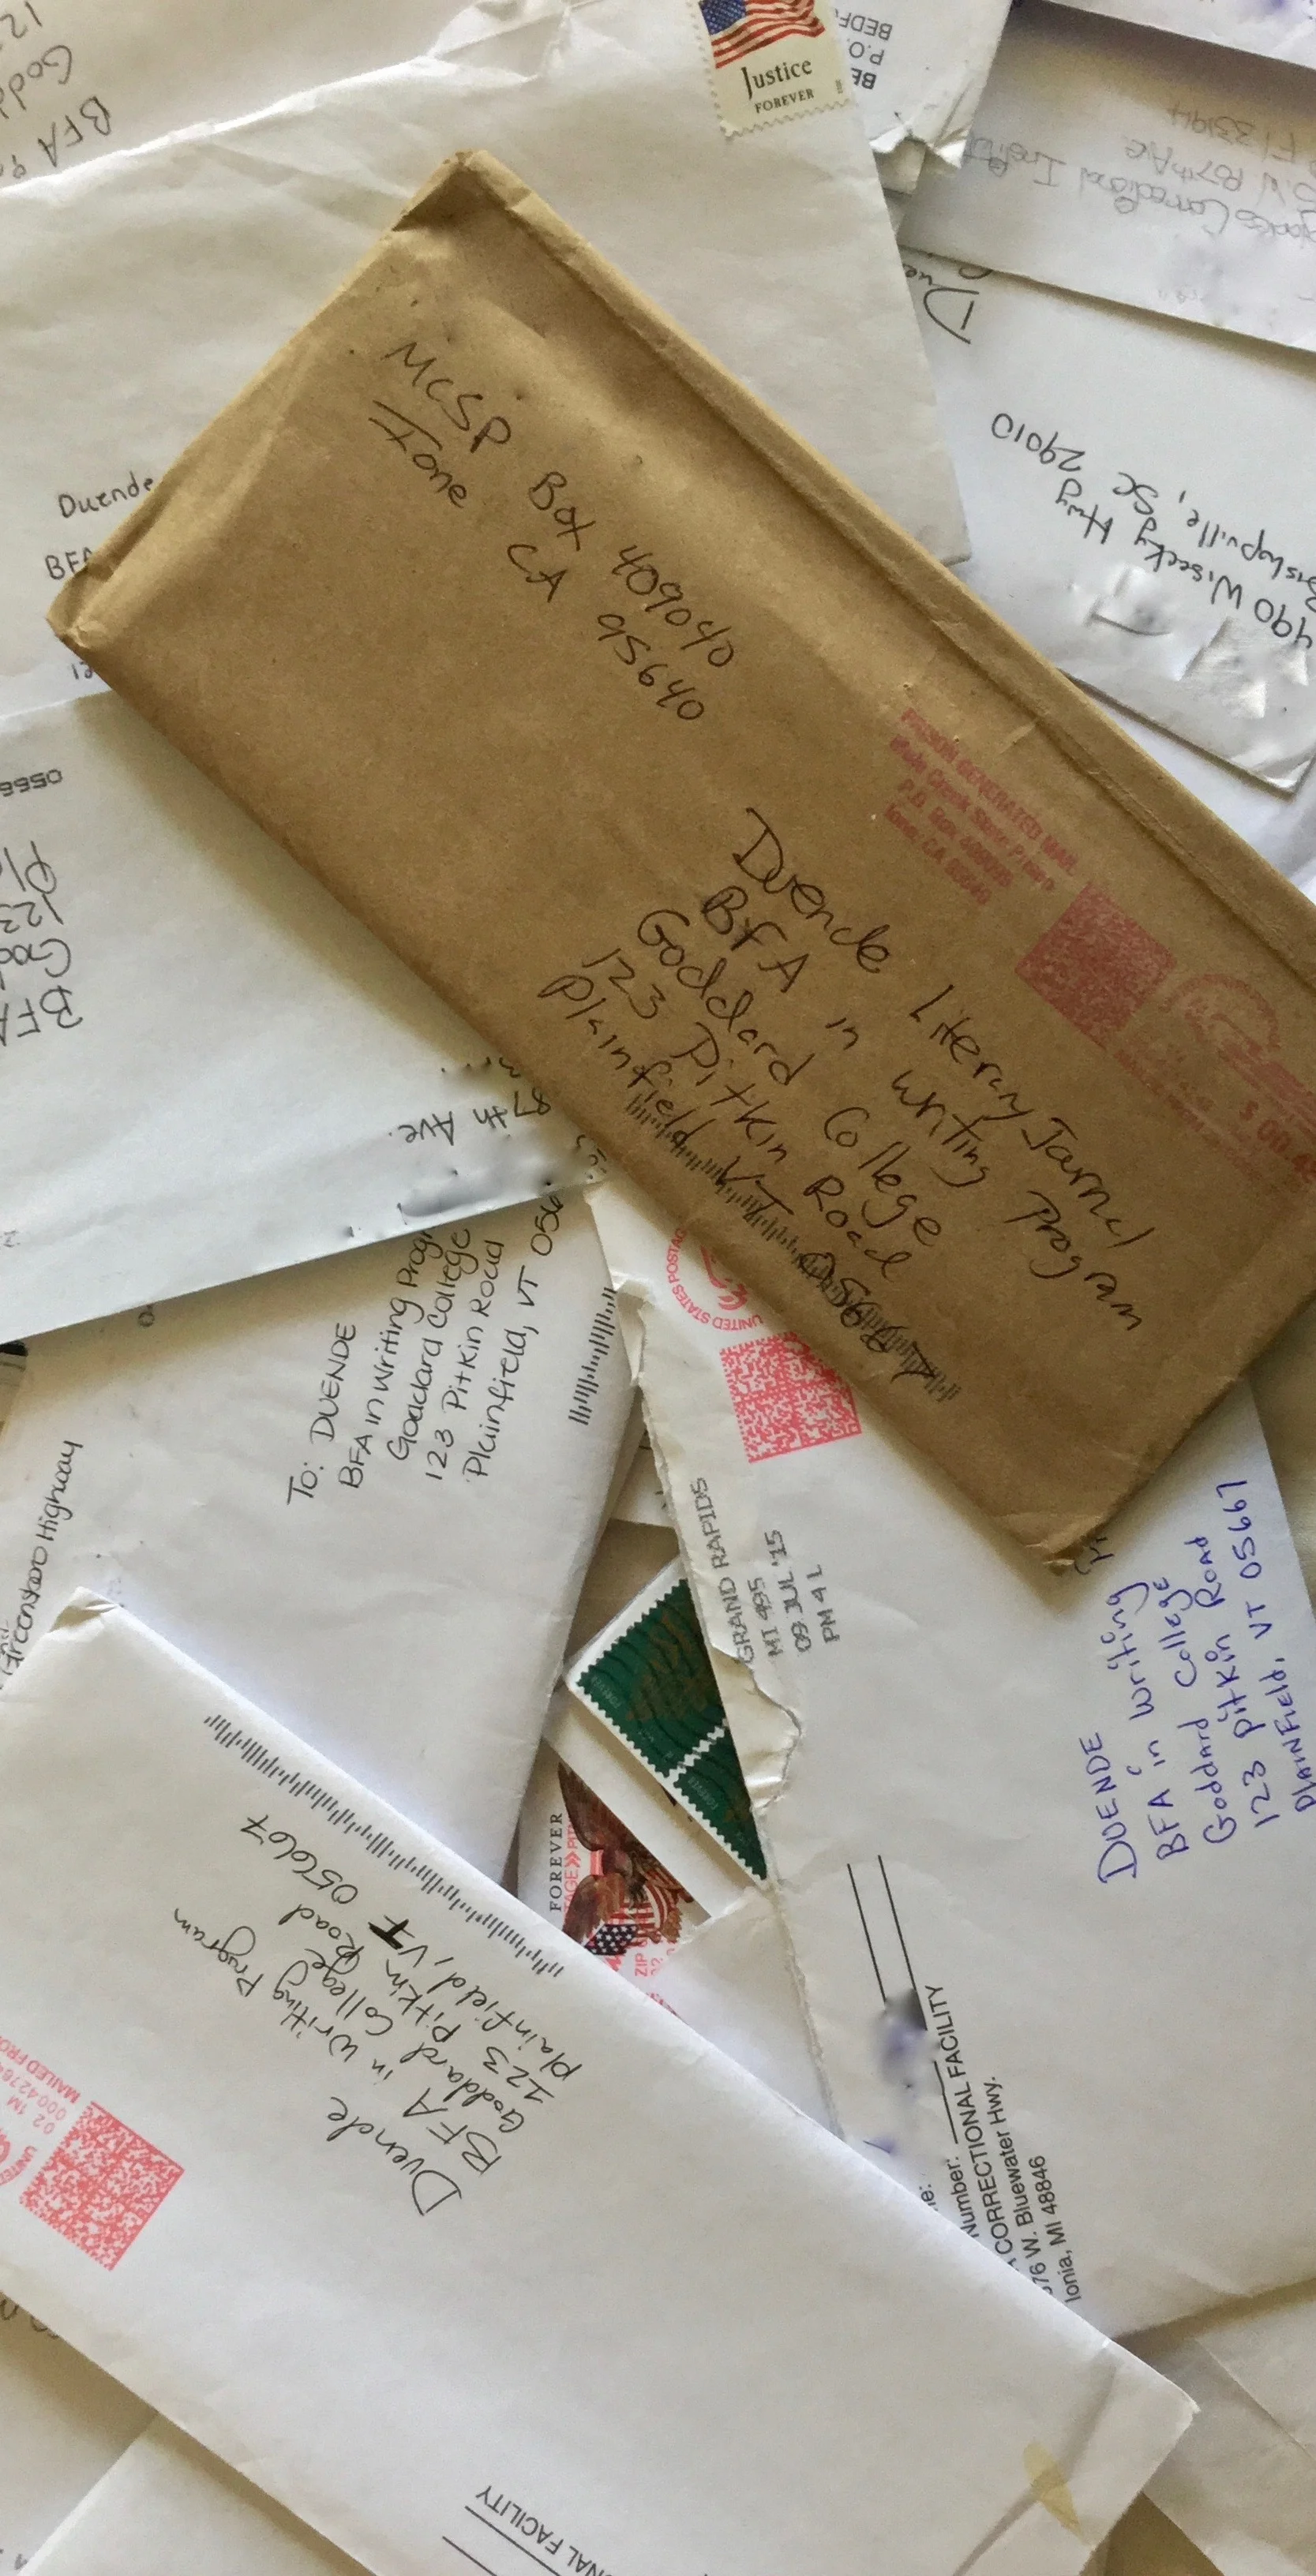 Justice
FOREVER
BEDF
P.O.
BE
12
Godd
BFA
Correctional Instit
S.W 187th Ave
Fl 33194
Due
490 Wisacky Hwy
Bishopville, SC 29010
Duende
BFA
12
MCSP Box 409040
Ione CA 95640
PRISON GENERATED MAIL
Mule Creek State Prison
P.O. Box
Ione, CA 95640
Duende Literary Journal
BFA in writing Program
Goddard College
123 Pitkin Road
Plainfield VT 05667
0566
Pl
123
God
BFA
87th Ave.
To: DUENDE
BFA in Writing Progr
Goddard College
123 Pitkin Road
Plainfield, VT 056
Greensboro Highway
UNITED STATES POSTAG
GRAND RAPIDS
MI 495
09 JUL '15
PM 4 L
DUENDE
BFA in Writing
Goddard College
123 Pitkin Road
Plainfield, VT 05667
FOREVER
TAGE
PIT
ZIP
02
Number:
CORRECTIONAL FACILITY
576 W. Bluewater Hwy.
Ionia, MI 48846
Duende
BFA in Writing Program
Goddard College
123 Pitkin Road
Plainfield, VT 05667
02 1M
MAILED FRO
NAL FACILITY